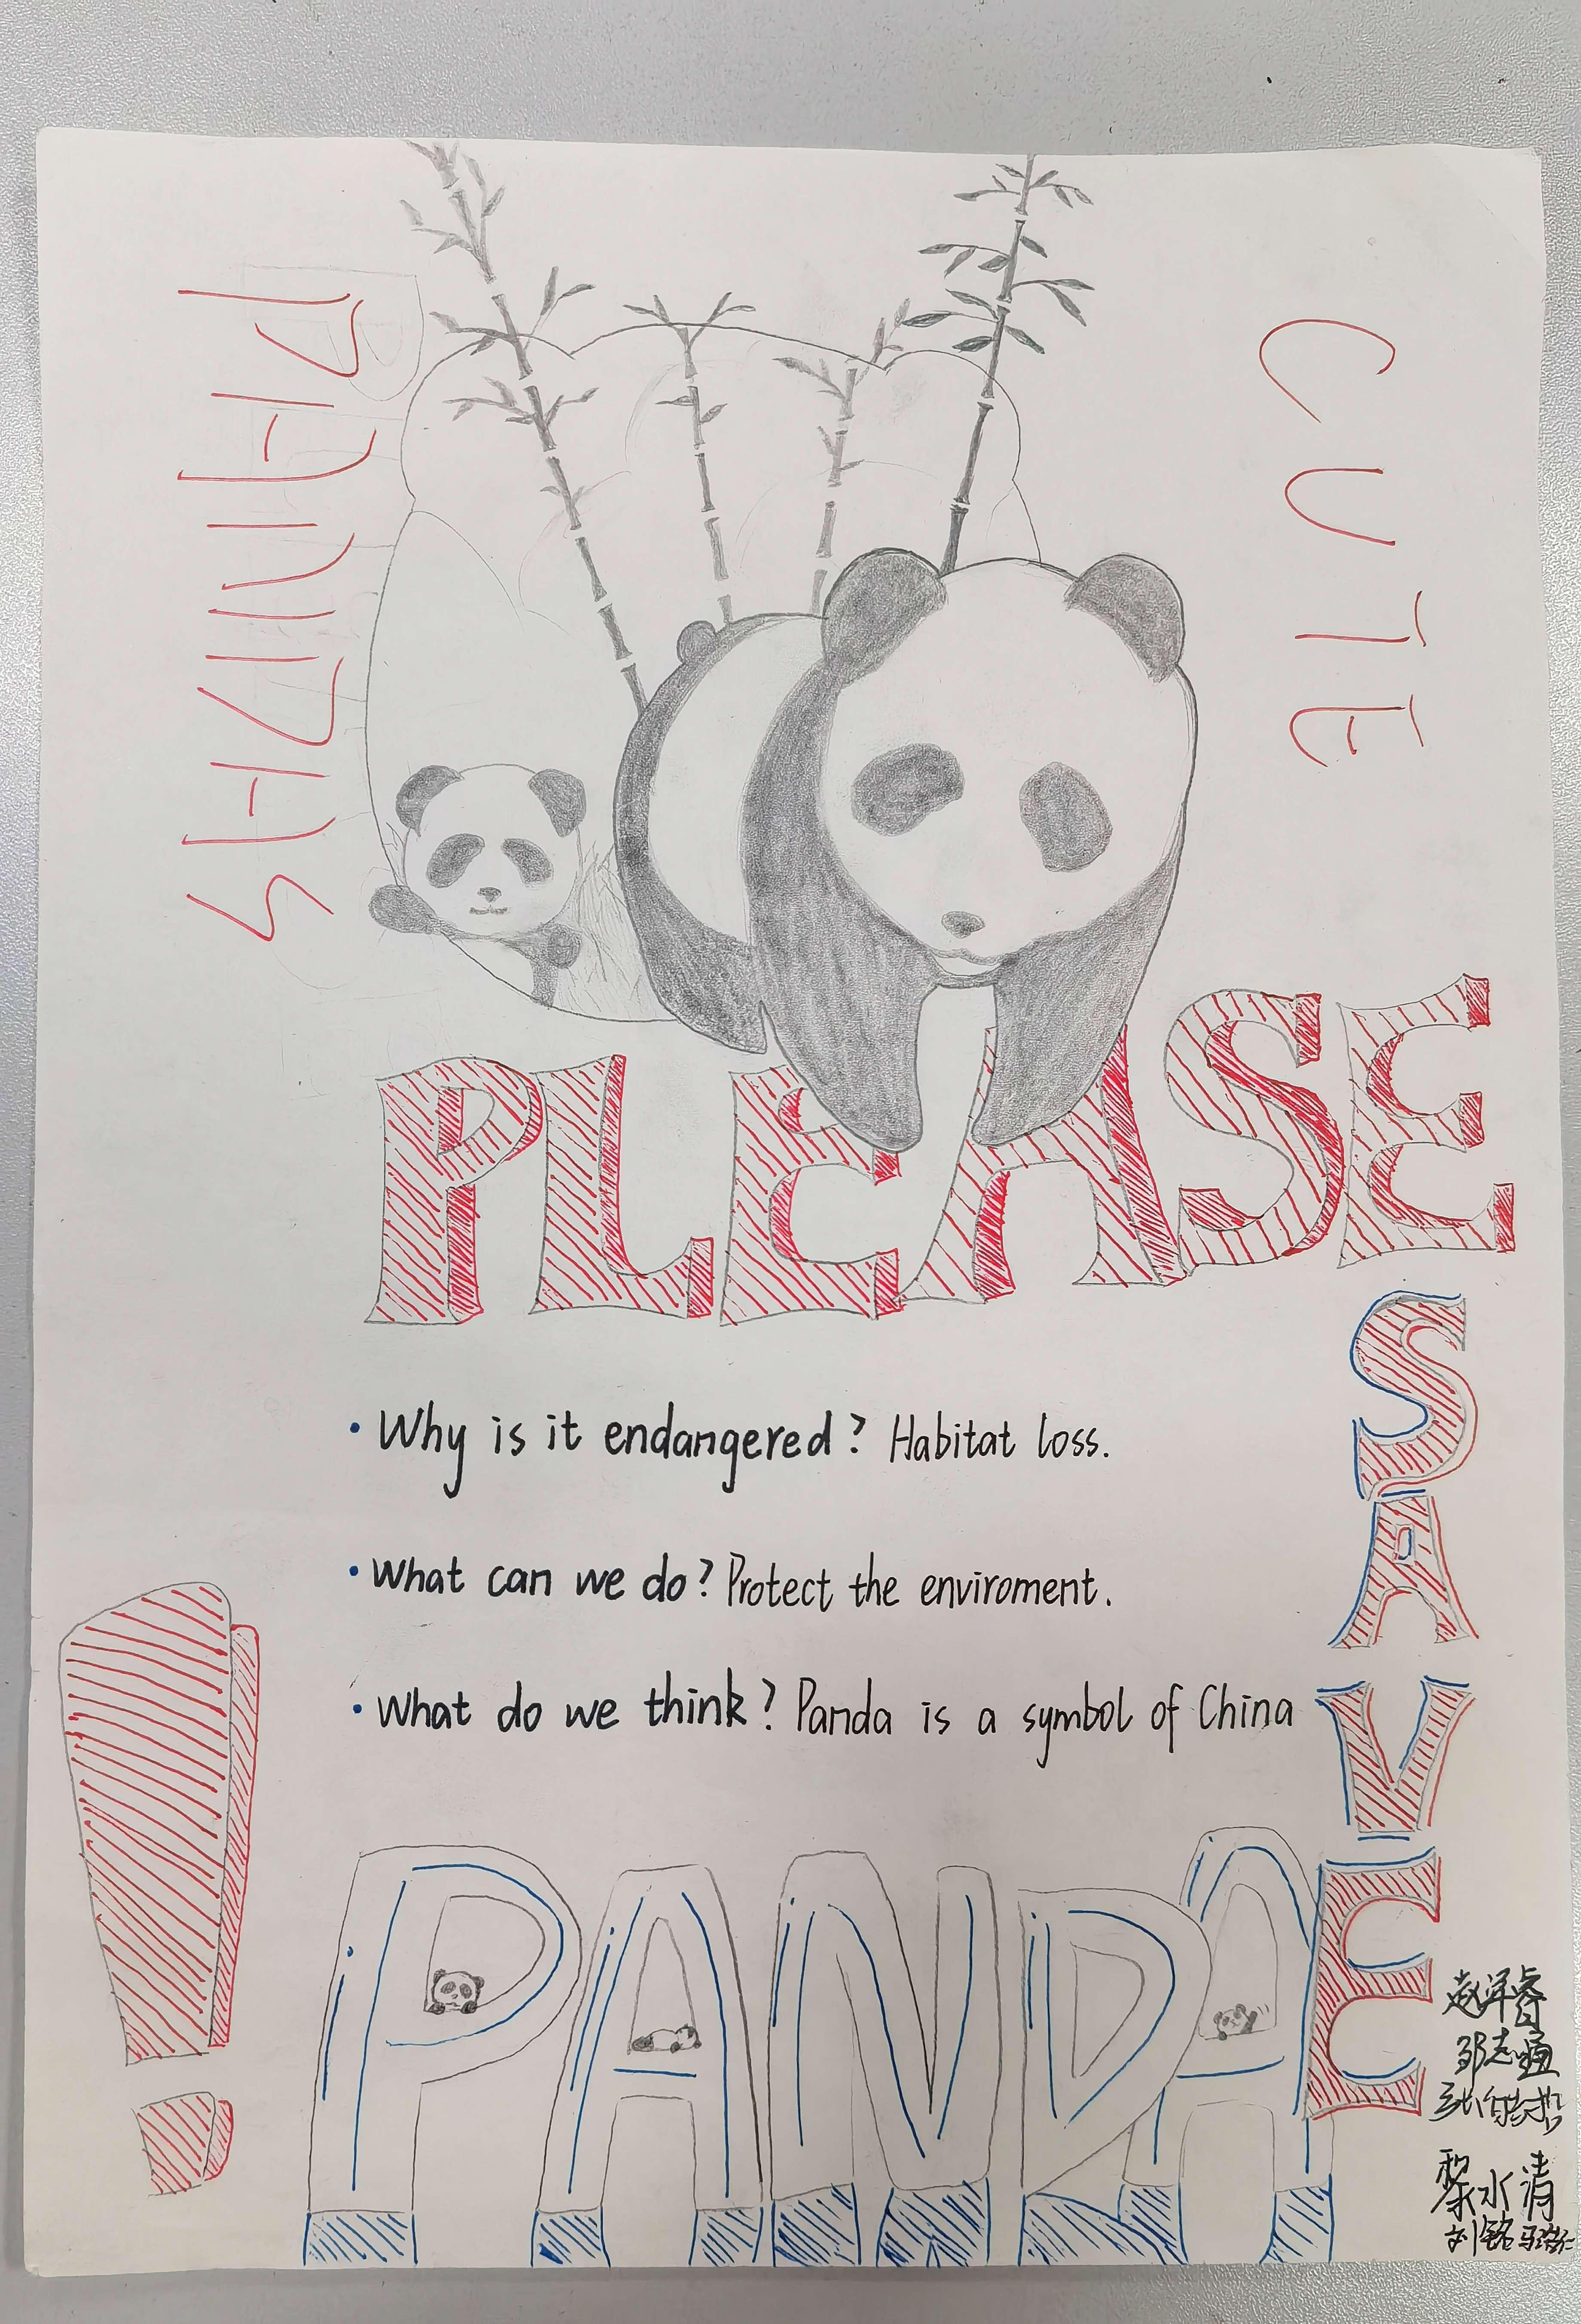 PANDAS
CUTE
PLEASE
SAVE
• Why is it endangered? Habitat loss.
• What can we do? Protect the enviroment.
• What do we think? Panda is a symbol of China
PANDA
!
黎水清